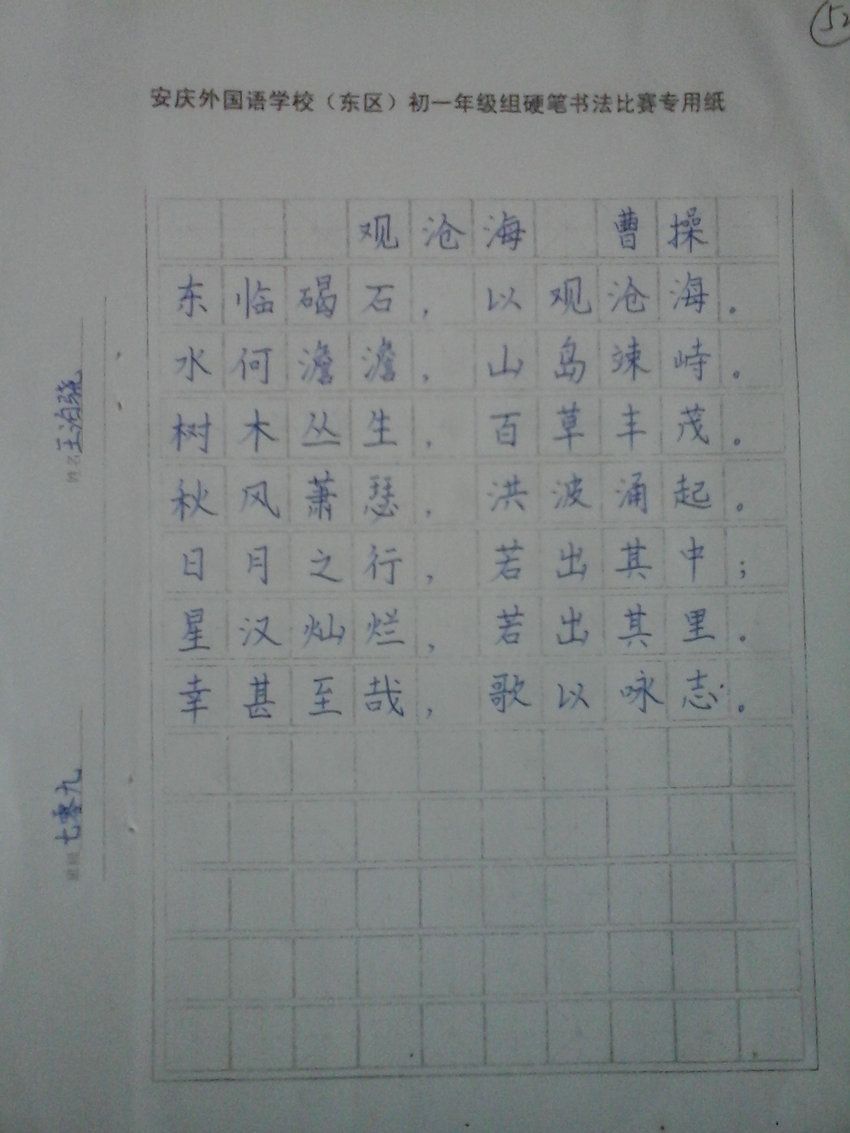 52
安庆外国语学校（东区）初一年级组硬笔书法比赛专用纸
观沧海 曹操
东临碣石，以观沧海。
水何澹澹，山岛竦峙。
树木丛生，百草丰茂。
秋风萧瑟，洪波涌起。
日月之行，若出其中；
星汉灿烂，若出其里。
幸甚至哉，歌以咏志。
姓名
班级 七零九